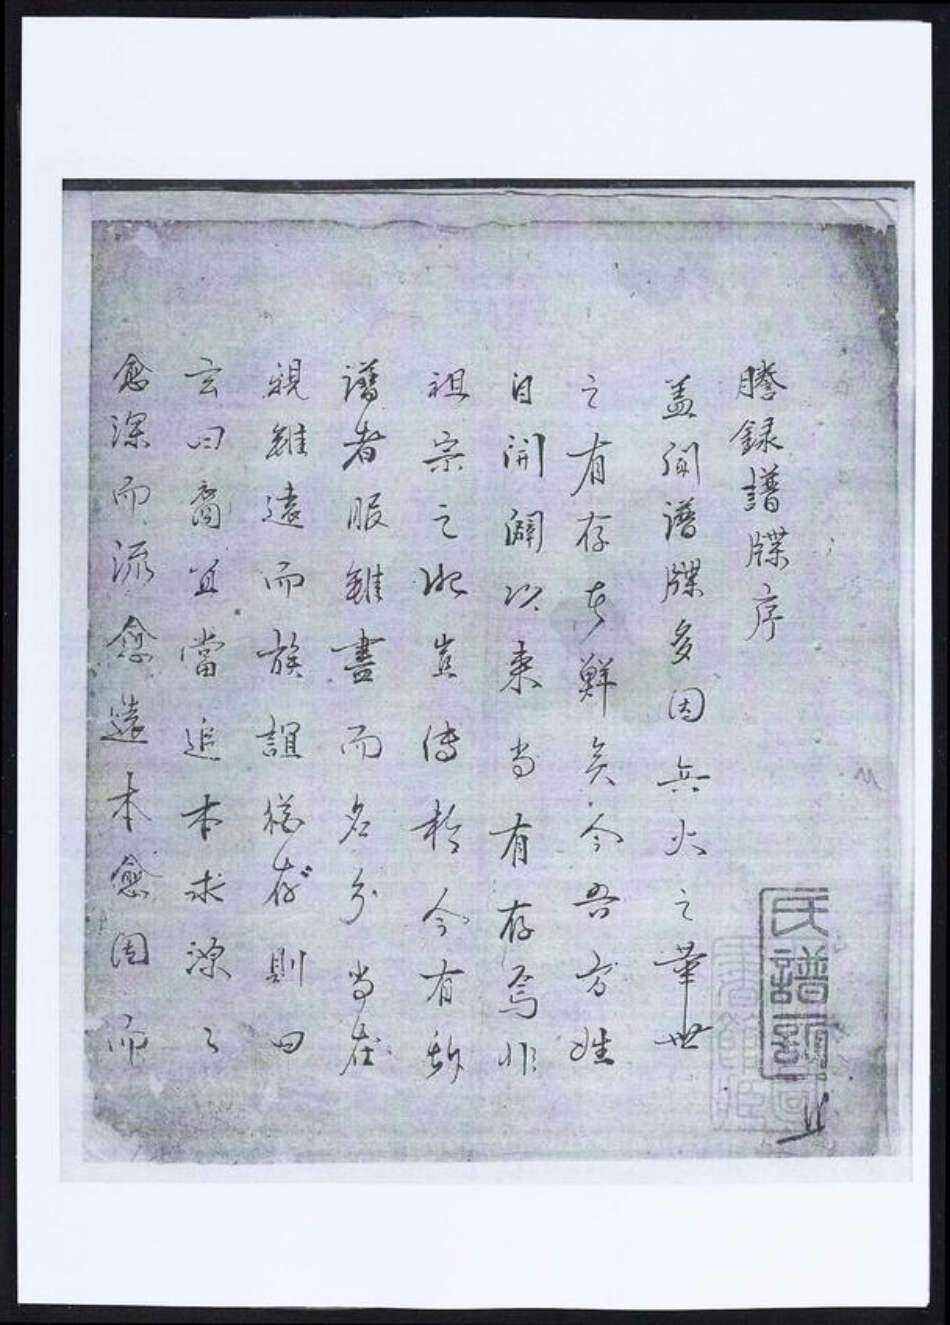 謄録譜牒序
盖闻譜牒多因兵火之華世
之有存者鮮矣今吾方姓
自開闢以来尚有存焉非
祖宗之改豈傳於今有斯
譜者服雖盡而名分尚在
親雖遠而族誼猶存則曰
玄曰裔宜當追本求源々
愈深而流愈遠本愈固而
氏譜